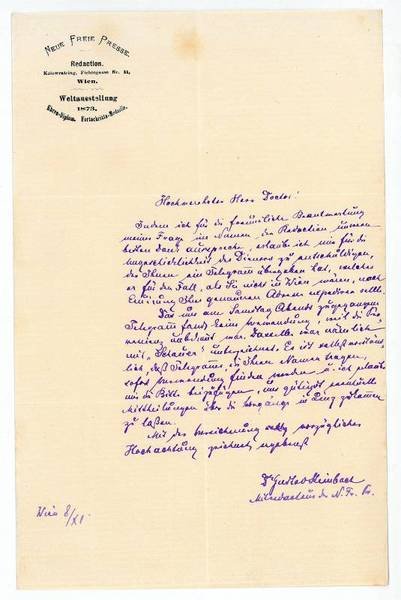 NEUE FREIE PRESSE.
Redaction.
Kolowratring, Fichtegasse Nr. 11,
Wien.
Weltausstellung
1873.
Ehren-Diplom. Fortschritts-Medaille.
Hochverehrter Herr Doctor!
Indem ich für die freundliche Beantwortung
meiner Frage im Namen der Redaction unseren
besten Dank ausspreche, erlaube ich mir für die
Ungeschicklichkeit des Dieners zu entschuldigen,
der Ihnen ein Telegram übergeben hat, welches
er für den Fall, als Sie nicht in Wien wären, nach
Eruirung Ihrer genauen Adresse
Das uns am Samstag Abends zugegangene
Telegram fand keine Verwendung, weil die
unbekannt war. Dasselbe war nämlich
mit "Schauer" unterzeichnet. Es ist selbstverständ-
lich, daß Telegrame, die Ihren Namen tragen,
sofort Verwendung finden werden u. ich erlaube
mir die Bitte beizufügen, uns gütigst eventuelle
Mittheilungen über die Vorgänge in Linz zukommen
zu laßen.
Mit der Versicherung vorzüglicher
Hochachtung zeichnet ergebenst
Dr Gustav Steinbach
Mitredacteur der N. Fr. Pr.
Wien 8/XI.